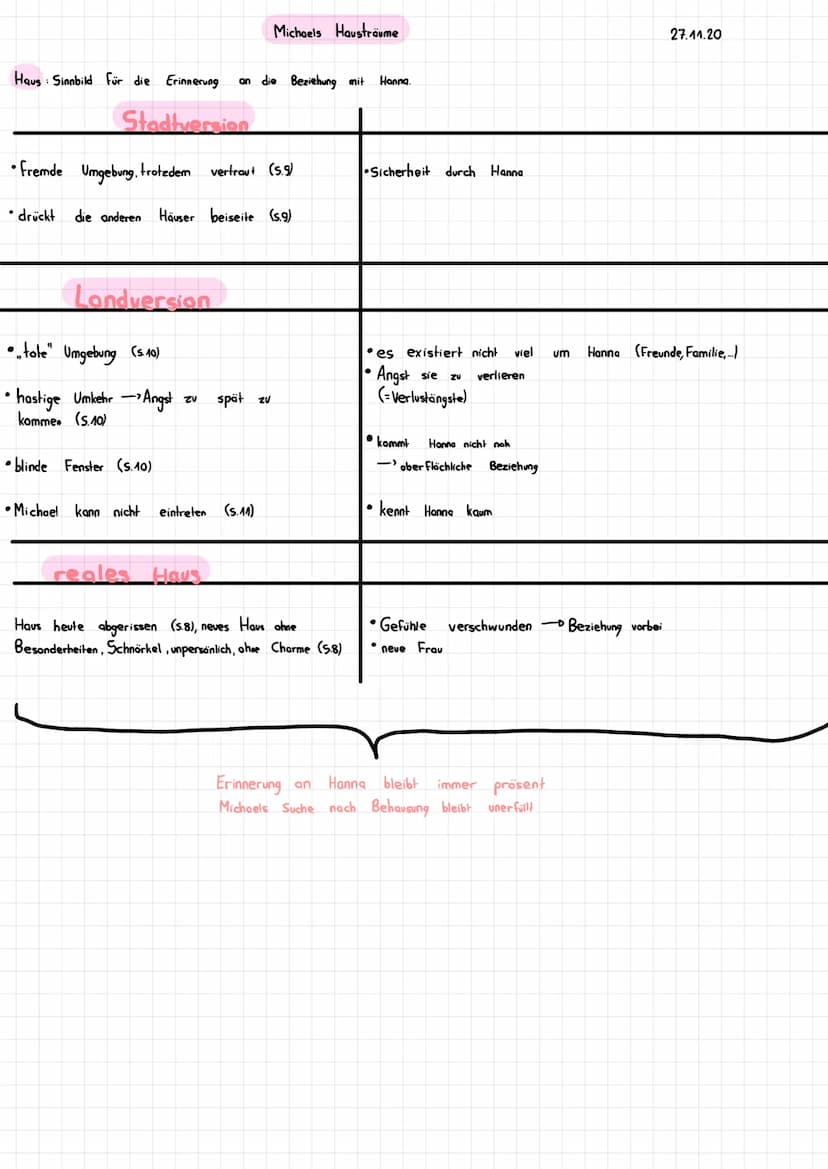 Michaels Hausträume
27.11.20
Haus: Sinnbild für die Erinnerung an die Beziehung mit Hanna.
Stadtversion
• fremde Umgebung, trotzdem vertraut (S.9)
• Sicherheit durch Hanna
• drückt die anderen Häuser beiseite (S.9)
Landversion
• „tote" Umgebung (S.10)
• es existiert nicht viel um Hanna (Freunde, Familie,...)
• Angst sie zu verlieren
(=Verlustängste)
• hastige Umkehr → Angst zu spät zu
kommen (S.10)
• kommt Hanna nicht nah
→ oberflächliche Beziehung
• blinde Fenster (S.10)
• Michael kann nicht eintreten (S.11)
• kennt Hanna kaum
reales Haus
Haus heute abgerissen (S.8), neues Haus ohne
Besonderheiten, Schnörkel, unpersönlich, ohne Charme (S.8)
• Gefühle verschwunden → Beziehung vorbei
• neue Frau
Erinnerung an Hanna bleibt immer präsent
Michaels Suche nach Behausung bleibt unerfüllt